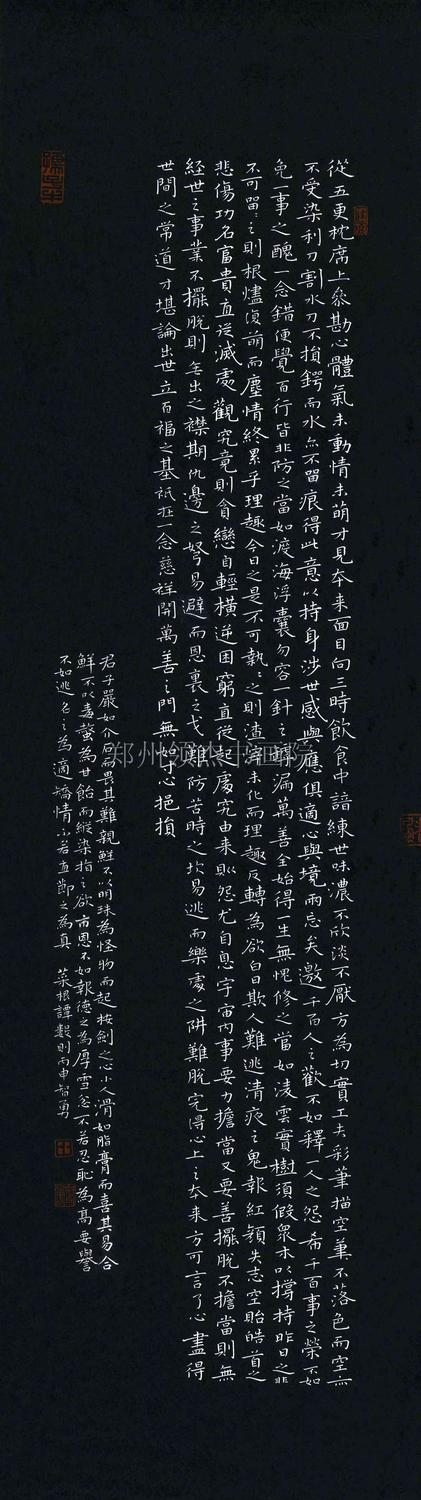 從五更枕席上參勘心體氣未動情未萌才見本来面目向三時飲食中諳練世味濃不欣淡不厭方為切實工夫彩筆描空筆不落色而空亦
不受染利刀割水刀不損鍔而水亦不留痕得此意以持身涉世感與應俱適心與境兩忘矣邀千百人之歡不如釋一人之怨希千百事之榮不如
免一事之醜一念錯便覺百行皆非防之當如渡海浮囊勿容一針之罅漏萬善全始得一生無愧修之當如凌雲寶樹須假眾木以撐持昨日之非
不可留之則根燼復萌而塵情終累乎理趣今日之是不可執之則渣滓未化而理趣反轉為欲白日欺人難逃清夜之鬼報紅顏失志空貽皓首之
悲傷功名富貴直從滅處觀究竟則貪戀自輕橫逆困窮直從起處究由来則怨尤自息宇宙內事要力擔當又要善擺脫不擔當則無
經世之事業不擺脫則無出之襟期仇邊之弩易避而恩裏之戈難防苦時之坎易逃而樂處之阱難脫完得心上之本来方可言了心盡得
世間之常道才堪論出世立百福之基祇在一念慈祥開萬善之門無如寸心挹損
君子嚴如介石而畏其難親鮮不以明珠為怪物而起按劍之心小人滑如脂膏而喜其易合
鮮不以毒螫為甘飴而縱染指之欲市恩不如報德之為厚雪忿不若忍恥為高要譽
不如逃名之為適矯情不若直節之為真 菜根譚數則丙申智勇
郑州领袖书画院